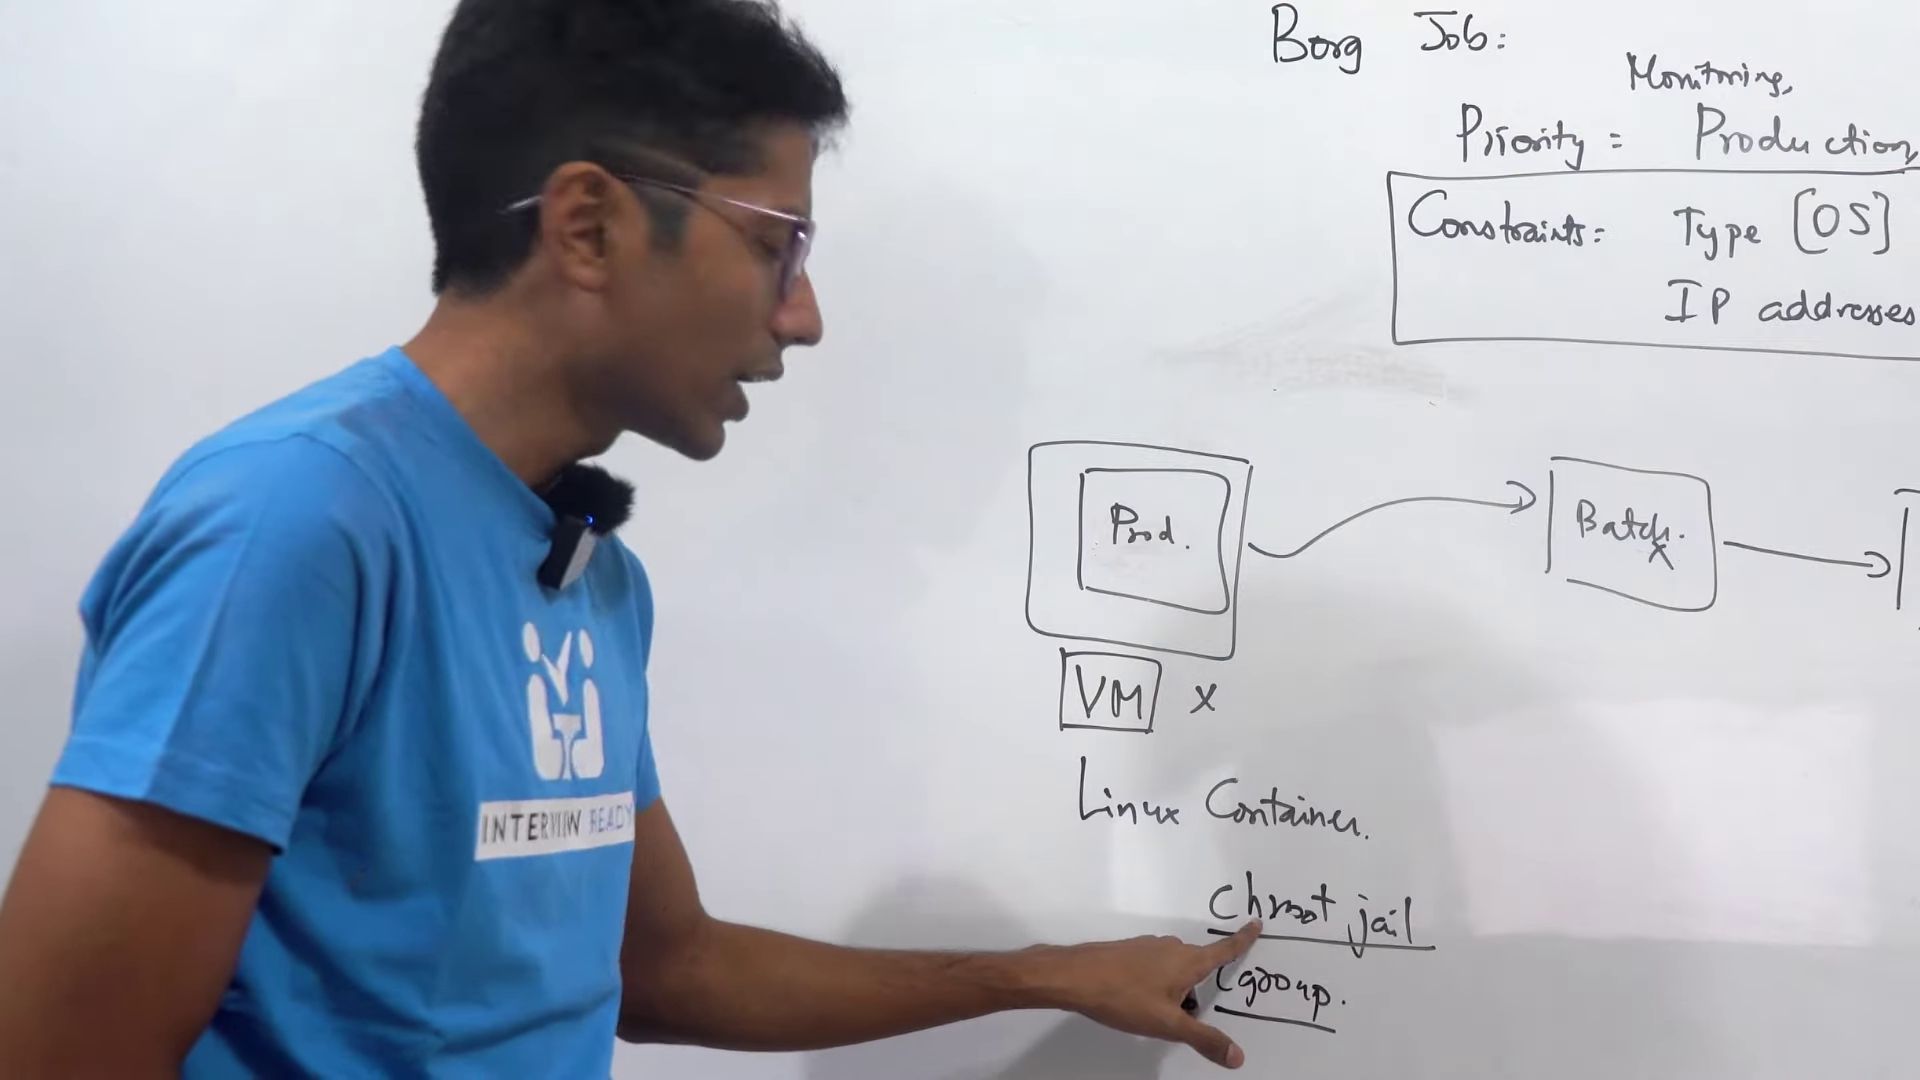 Borg Job:
Monitoring,
Priority = Production,
Constraints: Type [OS]
IP addresses
Prod.
Batch.
x
VM x
Linux Container.
Chroot jail
Cgroup.
INTERVIEW READY